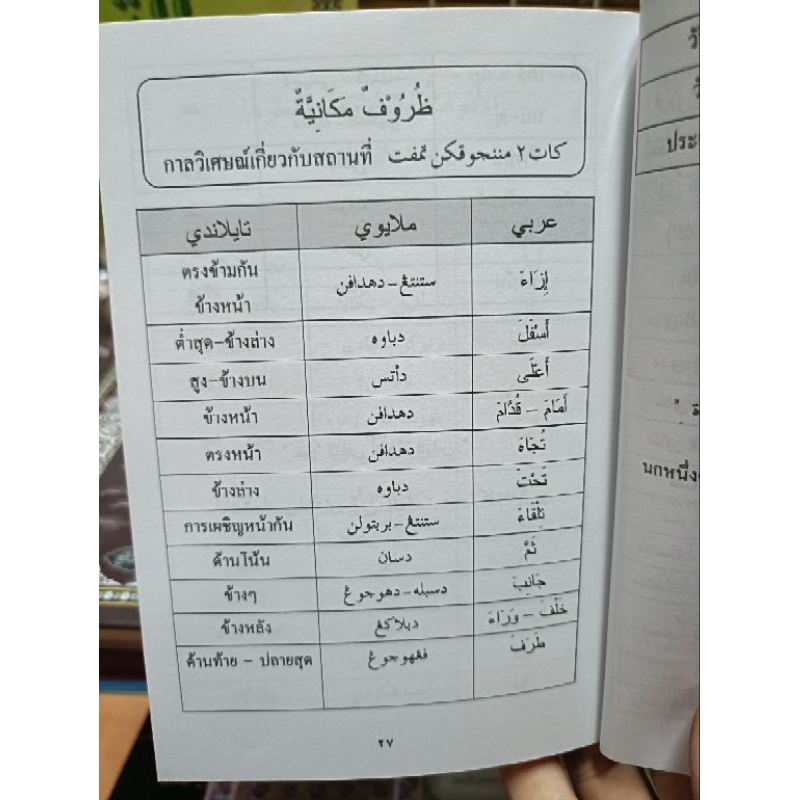 ظُرُوْفٌ مَكَانِيَّةٌ
كات٢ مننجوقكن تمفت กาลวิเศษณ์เกี่ยวกับสถานที่
عربي ملايوي تايلاندي
إِزَاءَ ستنتڠ-دهدافن ตรงข้ามกัน
ข้างหน้า
أَسْفَلَ دباوه ต่ำสุด-ข้างล่าง
أَعْلَى دأتس สูง-ข้างบน
أَمَامَ - قُدَّامَ دهدافن ข้างหน้า
تُجَاهَ دهدافن ตรงหน้า
تَحْتَ دباوه ข้างล่าง
تِلْقَاءَ ستنتڠ-بربتولن การเผชิญหน้ากัน
ثَمَّ دسان ด้านโน้น
جَانِبَ دسبله-دهوجوڠ ข้างๆ
خَلْفَ - وَرَاءَ دبلاكڠ ข้างหลัง
طَرَفَ فڠهوجوڠ ด้านท้าย - ปลายสุด
٢٧
ประ
นกหนึ่ง